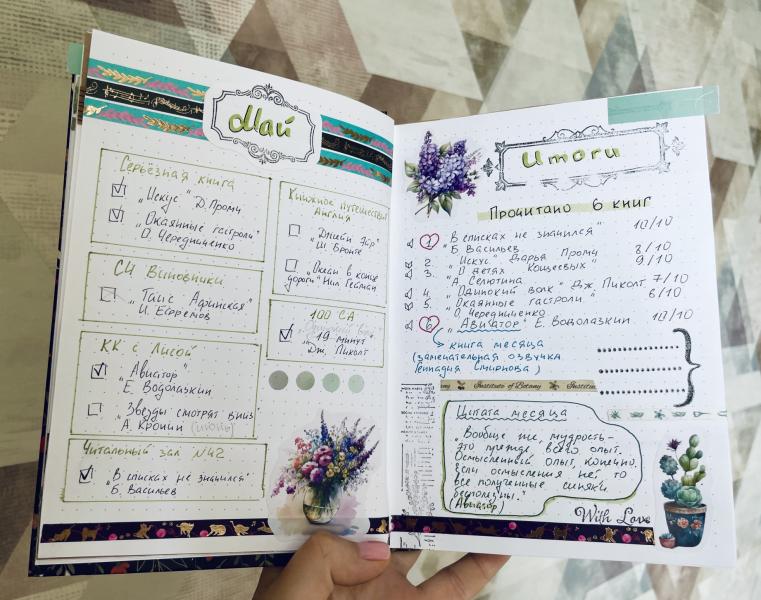 Май
Серьёзная книга
"Искус" Д. Промч
"Окаянные гастроли"
О. Чередниченко
СЧ Виновники
"Таис Афинская"
И. Ефремов
КК с Лисой
"Авиатор"
Е. Водолазкин
"Звезды смотрят вниз"
А. Кронин (июнь)
Читальный зал №42
"В списках не значился"
Б. Васильев
Книжное путешествие
Англия
"Джейн Эйр"
Ш. Бронте
"Океан в конце
дороги" Нил Гейман
100 СА
"19 минут"
"Дж. Пиколт
Итоги
Прочитано 6 книг
1. "В списках не значился" 10/10
Б. Васильев
2. "Искус" Дарья Промч 8/10
3. "О детях Кощеевых" 9/10
"А. Селютина
4. "Одинокий волк" Дж. Пиколт 7/10
5. "Окаянные гастроли" 6/10
О. Чередниченко
6. "Авиатор" Е. Водолазкин 10/10
книга месяца
(замечательная озвучка
Геннадия Смирнова)
Institute of Botany
Institute
Цитата месяца
"Вообще же, мудрость-
это прежде всего опыт.
Осмысленный опыт, конечно.
Если осмысления нет, то
все полученные синяки
бесполезны."
(Авиатор)
With Love